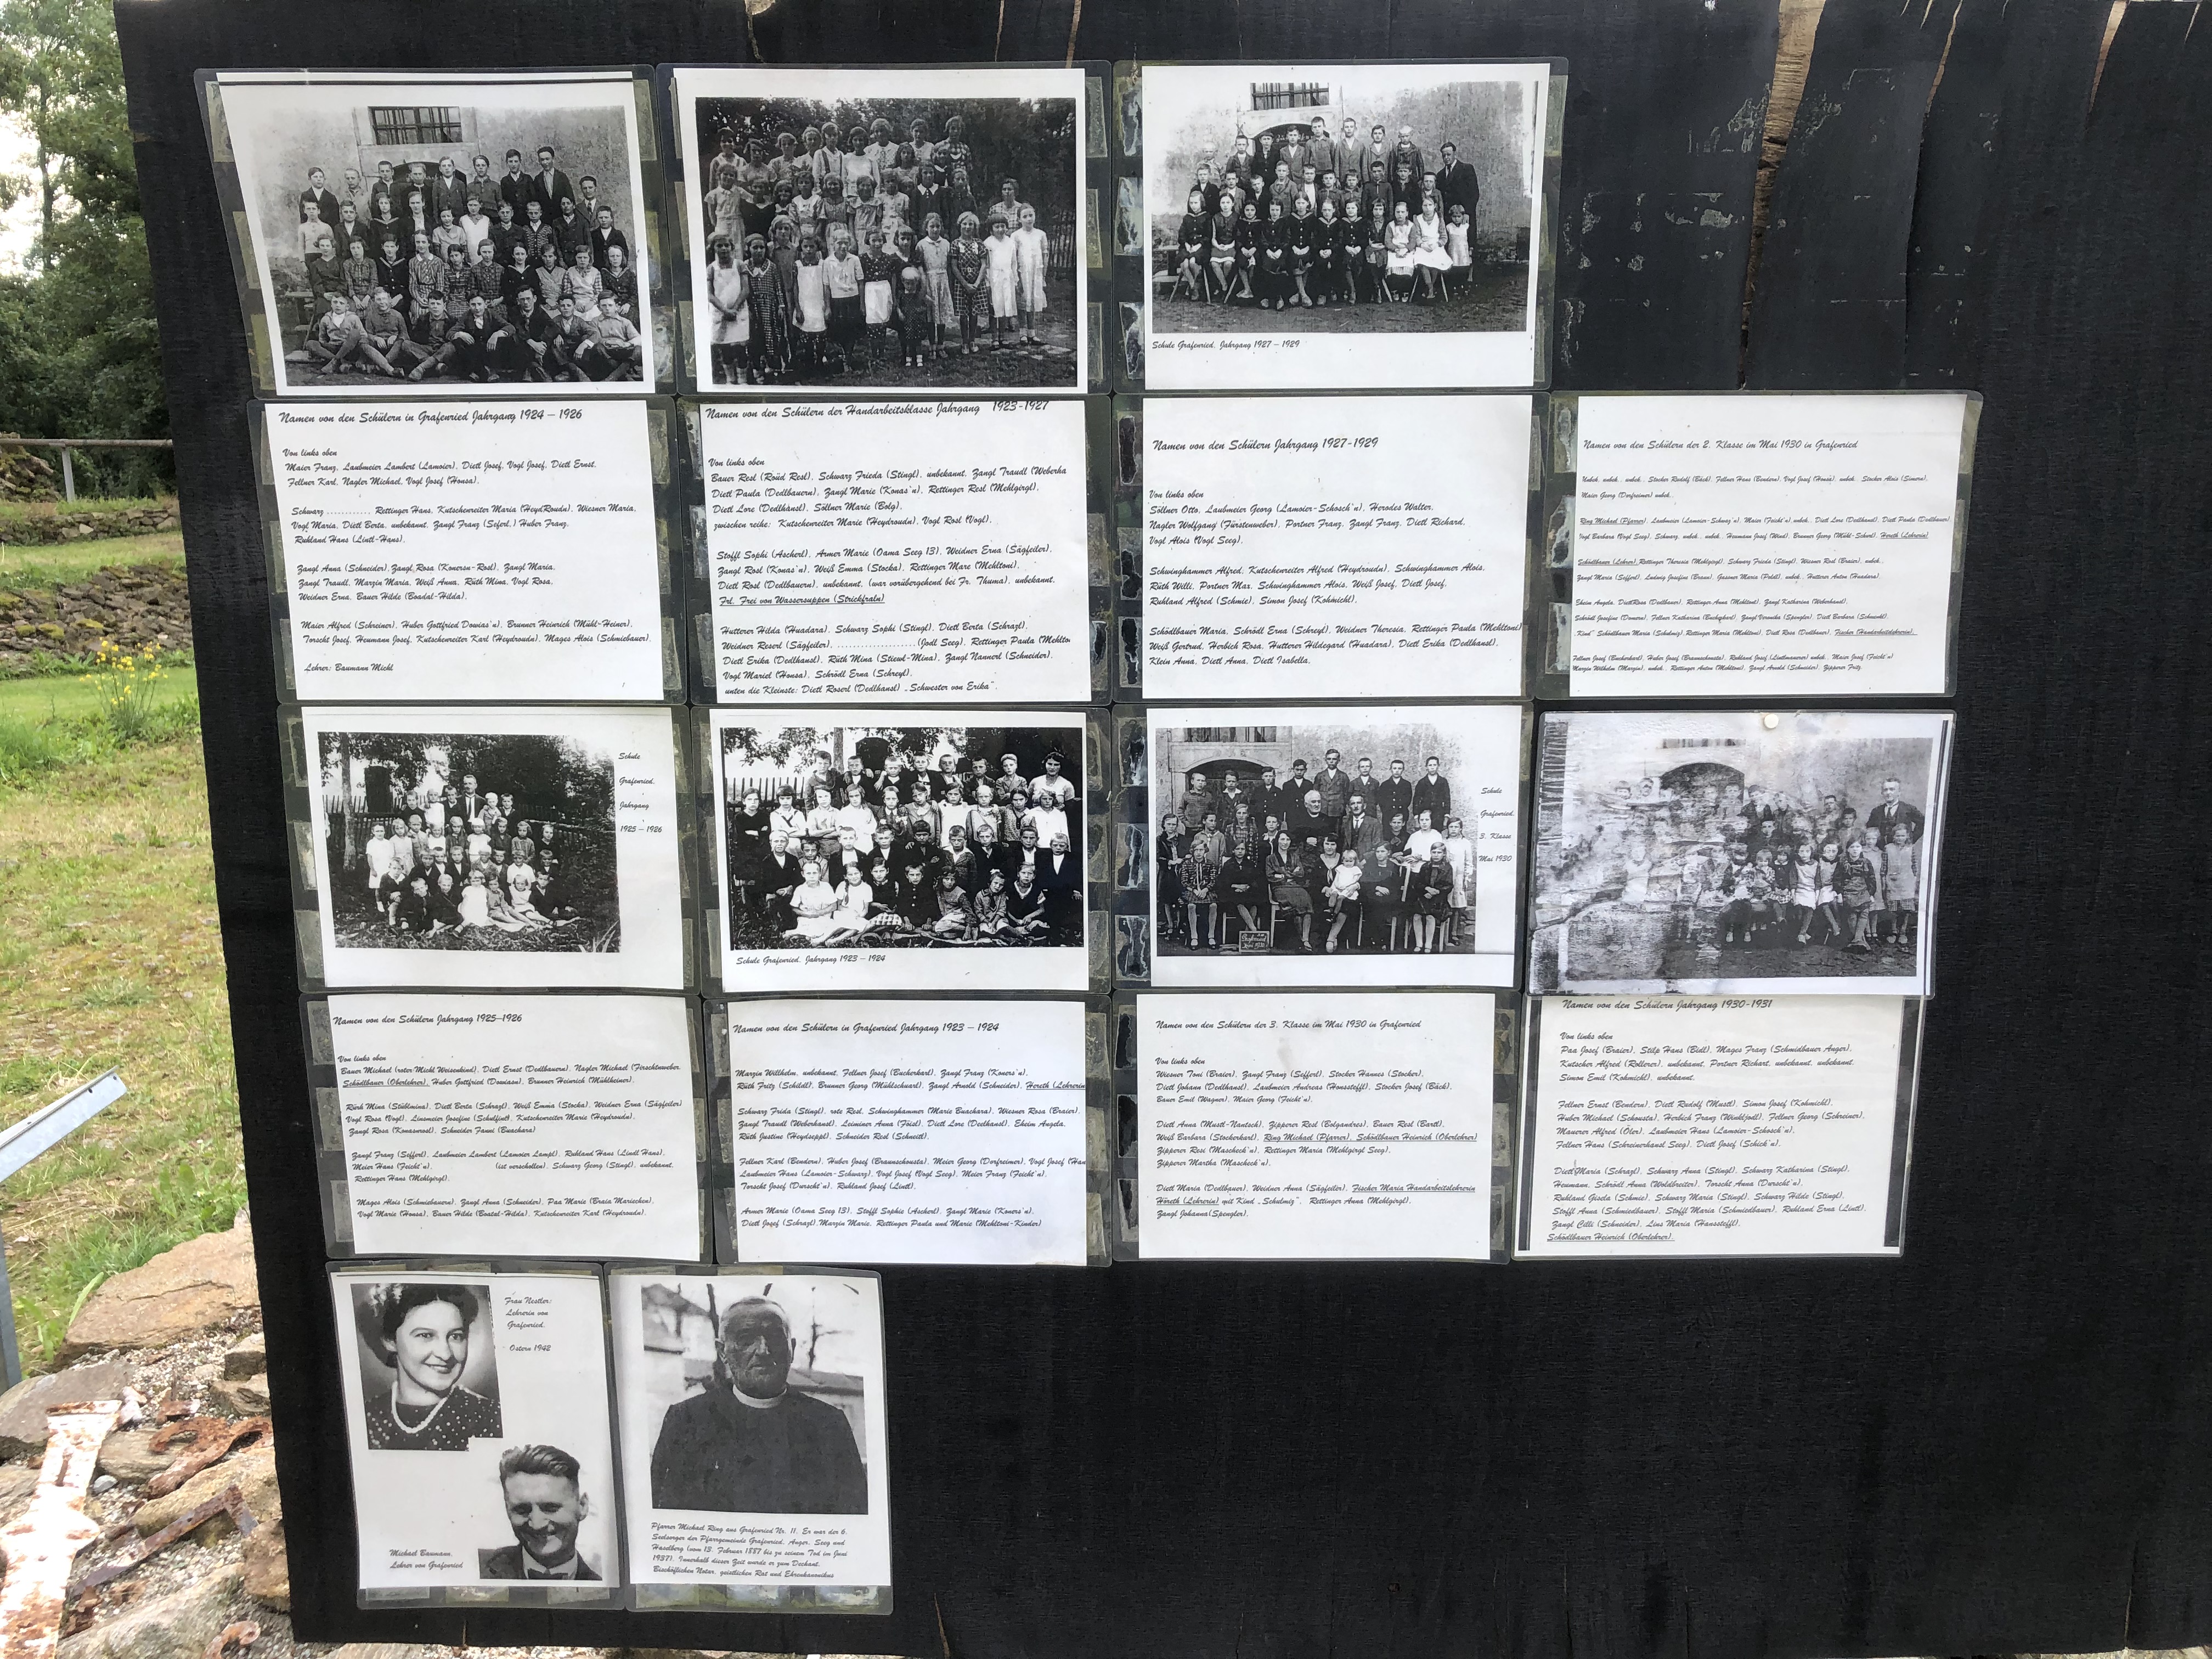 Schule Grafenried. Jahrgang 1927 – 1929
Namen von den Schülern in Grafenried Jahrgang 1924 – 1926
Von links oben
Maier Franz, Laubmeier Lambert (Lamoier), Dietl Josef, Vogl Josef, Dietl Ernst,
Fellner Karl, Nagler Michael, Vogl Josef (Honsa),
Schwarz ............ Rettinger Hans, Kutschenreiter Maria (HeydRoudn), Wiesner Maria,
Vogl Maria, Dietl Berta, unbekannt, Zangl Franz (Seferl,) Huber Franz,
Ruhland Hans (Lintl-Hans),
Zangl Anna (Schneider), Zangl Rosa (Konersn-Rosl), Zangl Maria,
Zangl Traudl, Margin Maria, Weiß Anna, Rüth Mina, Vogl Rosa,
Weidner Erna, Bauer Hilde (Boadal-Hilda),
Maier Alfred (Schreiner), Huber Gottfried Dowias'n), Brunner Heinrich (Mühl-Heiner),
Torscht Josef, Heumann Josef, Kutschenreiter Karl (Heydroudn), Mages Alois (Schmiebauer),
Lehrer: Baumann Michl
Namen von den Schülern der Handarbeitsklasse Jahrgang 1923-1927
Von links oben
Bauer Resl (Roud Resl), Schwarz Frieda (Stingl), unbekannt, Zangl Traudl (Weberha
Dietl Paula (Dedlbauern), Zangl Marie (Konas'n), Rettinger Resl (Mehlgirgl),
Dietl Lore (Dedlhansl), Söllner Marie (Bolg),
zwischen reihe: Kutschenreiter Marie (Heydroudn), Vogl Rosl (Vogl),
Stoffl Sophi (Ascherl), Armer Marie (Oama Seeg 13), Weidner Erna (Sägfeiler),
Zangl Rosl (Konas'n), Weiß Emma (Stocka), Rettinger Mare (Mehltoni),
Dietl Rosl (Dedlbauern), unbekannt, (war vorübergehend bei Fr. Thuma), unbekannt,
Frl. Frei von Wassersuppen (Strickfraln)
Hutterer Hilda (Huadara), Schwarz Sophi (Stingl), Dietl Berta (Schrazl),
Weidner Reserl (Sägfeiler), ......................(Jodl Seeg), Rettinger Paula (Mehlto
Dietl Erika (Dedlhansl), Rüth Mina (Stiewl-Mina), Zangl Nannerl (Schneider),
Vogl Mariel (Honsa), Schrödl Erna (Schreyl),
unten die Kleinste: Dietl Roserl (Dedlhansl) „Schwester von Erika".
Namen von den Schülern Jahrgang 1927-1929
Von links oben
Söllner Otto, Laubmeier Georg (Lamoier-Schosch'n), Herodes Walter,
Nagler Wolfgang (Fürstenweber), Portner Franz, Zangl Franz, Dietl Richard,
Vogl Alois (Vogl Seeg),
Schwinghammer Alfred, Kutschenreiter Alfred (Heydroudn), Schwinghammer Alois,
Rüth Willi, Portner Max, Schwinghammer Alois, Weiß Josef, Dietl Josef,
Ruhland Alfred (Schmie), Simon Josef (Kohmichl),
Schödlbauer Maria, Schrödl Erna (Schreyl), Weidner Theresia, Rettinger Paula (Mehltoni)
Weiß Gertrud, Herbich Rosa, Hutterer Hildegard (Huadara), Dietl Erika (Dedlhansl),
Klein Anna, Dietl Anna, Dietl Isabella,
Namen von den Schülern der 2. Klasse im Mai 1930 in Grafenried
Unbek., unbek., unbek., Stocker Rudolf (Bäck), Fellner Hans (Bendern), Vogl Josef (Honsa), unbek., Stocker Alois (Simern),
Maier Georg (Dorfreimer) unbek.,
Ring Michael (Pfarrer), Laubmeier (Lamoier-Schwaz'n), Maier (Feicht'n) unbek., Dietl Lore (Dedlhansl), Dietl Paula (Dedlbauer)
Vogl Barbara (Vogl Seeg), Schwarz, unbek., unbek., Heumann Josef (Wind), Brunner Georg (Mühl-Schurl), Hereth (Lehrerin)
Schödlbauer (Lehrer), Rettinger Theresia (Mehlgirgl), Schwarz Frieda (Stingl), Wiesner Rosl (Braier), unbek.,
Zangl Maria (Sefferl), Ludwig Josefine (Braun), Gassner Maria (Poldl), unbek., Hutterer Anton (Huadara),
Eheim Angela, DietlRosa (Dedlbauer), Rettinger Anna (Mehltoni), Zangl Katharina (Weberhansl),
Schrödl Josefine (Donera), Fellner Katharina (Bucherkarl), Zangl Veronika (Spengler), Dietl Barbara (Schmiedl),
"Kind" Schödlbauer Maria (Schulmig), Rettinger Maria (Mehltoni), Dietl Rosa (Dedlbauer), Fischer (Handarbeitslehrerin),
Fellner Josef (Bucherkarl), Huber Josef (Braunschousta), Ruhland Josef (Lintlmauerer) unbek., Maier Josef (Feicht'n)
Margin Wilhelm (Margin), unbek., Rettinger Anton (Mehltoni), Zangl Arnold (Schneider), Zipperer Fritz,
Schule
Grafenried,
Jahrgang
1925 – 1926
Schule Grafenried, Jahrgang 1923 – 1924
Schule
Grafenried,
3. Klasse
Mai 1930
Grafenried
Namen von den Schülern Jahrgang 1925–1926
Von links oben
Bauer Michael (roter Michl Weisenhind), Dietl Ernst (Dedlbauern), Nagler Michael (Firschtnweber,
Schödlbauer (Oberlehrer), Huber Gottfried (Douniasn), Brunner Heinrich (Mühlheiner),
Rüth Mina (Stüblmina), Dietl Berta (Schragl), Weiß Emma (Stocka), Weidner Erna (Sägfeiler)
Vogl Rosa (Vogl), Linsmeier Josefine (Schulfint), Kutschenreiter Marie (Heydroudn),
Zangl Rosa (Konasnrosl), Schneider Fanni (Buachara)
Zangl Franz (Sefferl), Laubmeier Lambert (Lamoier Lampl), Ruhland Hans (Lindl Hans),
Meier Hans (Feicht'n), (ist verschollen), Schwarz Georg (Stingl), unbekannt,
Rettinger Hans (Mehlgirgl),
Mages Alois (Schmiebauern), Zangl Anna (Schneider), Paa Marie (Braia Mariechen),
Vogl Marie (Honsa), Bauer Hilde (Boatal-Hilda), Kutschenreiter Karl (Heydroudn),
Namen von den Schülern in Grafenried Jahrgang 1923 – 1924
Margin Willhelm, unbekannt, Fellner Josef (Bucherkarl), Zangl Franz (Koners'n),
Rüth Fritz (Schildl), Brunner Georg (Mühlschuarl), Zangl Arnold (Schneider), Hereth (Lehrerin
Schwarz Frida (Stingl), rote Resl, Schwinghammer (Marie Buachara), Wiesner Rosa (Braier),
Zangl Traudl (Weberhansl), Leiminer Anna (Föisl), Dietl Lore (Dedlhansl), Eheim Angela,
Rüth Justine (Heydseppl), Schneider Resl (Schneitl),
Fellner Karl (Bendern), Huber Josef (Braunschousta), Meier Georg (Dorfreimer), Vogl Josef (Hon
Laubmeier Hans (Lamoier-Schwarz), Vogl Josef (Vogl Seeg), Meier Franz (Feicht'n),
Torscht Josef (Durscht'n), Ruhland Josef (Lintl),
Armer Marie (Oama Seeg 13), Stoffl Sophie (Ascherl), Zangl Marie (Koners'n),
Dietl Josef (Schragl), Margin Marie, Rettinger Paula und Marie (Mehltoni-Kinder)
Namen von den Schülern der 3. Klasse im Mai 1930 in Grafenried
Von links oben
Wiesner Toni (Braier), Zangl Franz (Sefferl), Stocker Hannes (Stocker),
Dietl Johann (Dedlhansl), Laubmeier Andreas (Honssteffl), Stocker Josef (Bäck),
Bauer Emil (Wagner), Maier Georg (Feicht'n),
Dietl Anna (Mustl-Nantsch), Zipperer Resl (Bolgandres), Bauer Resl (Bartl),
Weiß Barbara (Stockerkarl), Ring Michael (Pfarrer), Schödlbauer Heinrich (Oberlehrer)
Zipperer Resi (Mascheck'n), Rettinger Maria (Mehlgirgl Seeg),
Zipperer Martha (Mascheck'n),
Dietl Maria (Dedlbauer), Weidner Anna (Sägfeiler), Fischer Maria Handarbeitslehrerin
Höreth (Lehrerin) mit Kind „Schulmig", Rettinger Anna (Mehlgirgl),
Zangl Johanna(Spengler),
Namen von den Schülern Jahrgang 1930-1931
Von links oben
Paa Josef (Braier), Stilp Hans (Bidl), Mages Franz (Schmidbauer Anger),
Kutscher Alfred (Rollerer), unbekannt, Portner Richart, unbekannt, unbekannt,
Simon Emil (Kohmichl), unbekannt,
Fellner Ernst (Bendern), Dietl Rudolf (Mustl), Simon Josef (Kohmichl),
Huber Michael (Schousta), Herbich Franz (Winkljodl), Fellner Georg (Schreiner),
Mauerer Alfred (Öler), Laubmeier Hans (Lamoier-Schosch'n),
Fellner Hans (Schreinerhansl Seeg), Dietl Josef (Schick'n),
Dietl Maria (Schrazl), Schwarz Anna (Stingl), Schwarz Katharina (Stingl),
Heumann, Schrödl Anna (Woldbreiter), Torscht Anna (Durscht'n),
Ruhland Gisela (Schmie), Schwarz Maria (Stingl), Schwarz Hilde (Stingl),
Stoffl Anna (Schmiedbauer), Stoffl Maria (Schmiedbauer), Ruhland Erna (Lintl),
Zangl Cilli (Schneider), Lins Maria (Hanssteffl),
Schödlbauer Heinrich (Oberlehrer).
Frau Nestler:
Lehrerin von
Grafenried,
Ostern 1942
Michael Baumann,
Lehrer von Grafenried
Pfarrer Michael Ring aus Grafenried Nr. 11. Er war der 6.
Seelsorger der Pfarrgemeinde Grafenried, Anger, Seeg und
Haselberg (vom 13. Februar 1887 bis zu seinem Tod im Juni
1937). Innerhalb dieser Zeit wurde er zum Dechant,
Bischöflichen Notar, geistlichen Rat und Ehrenkanonikus